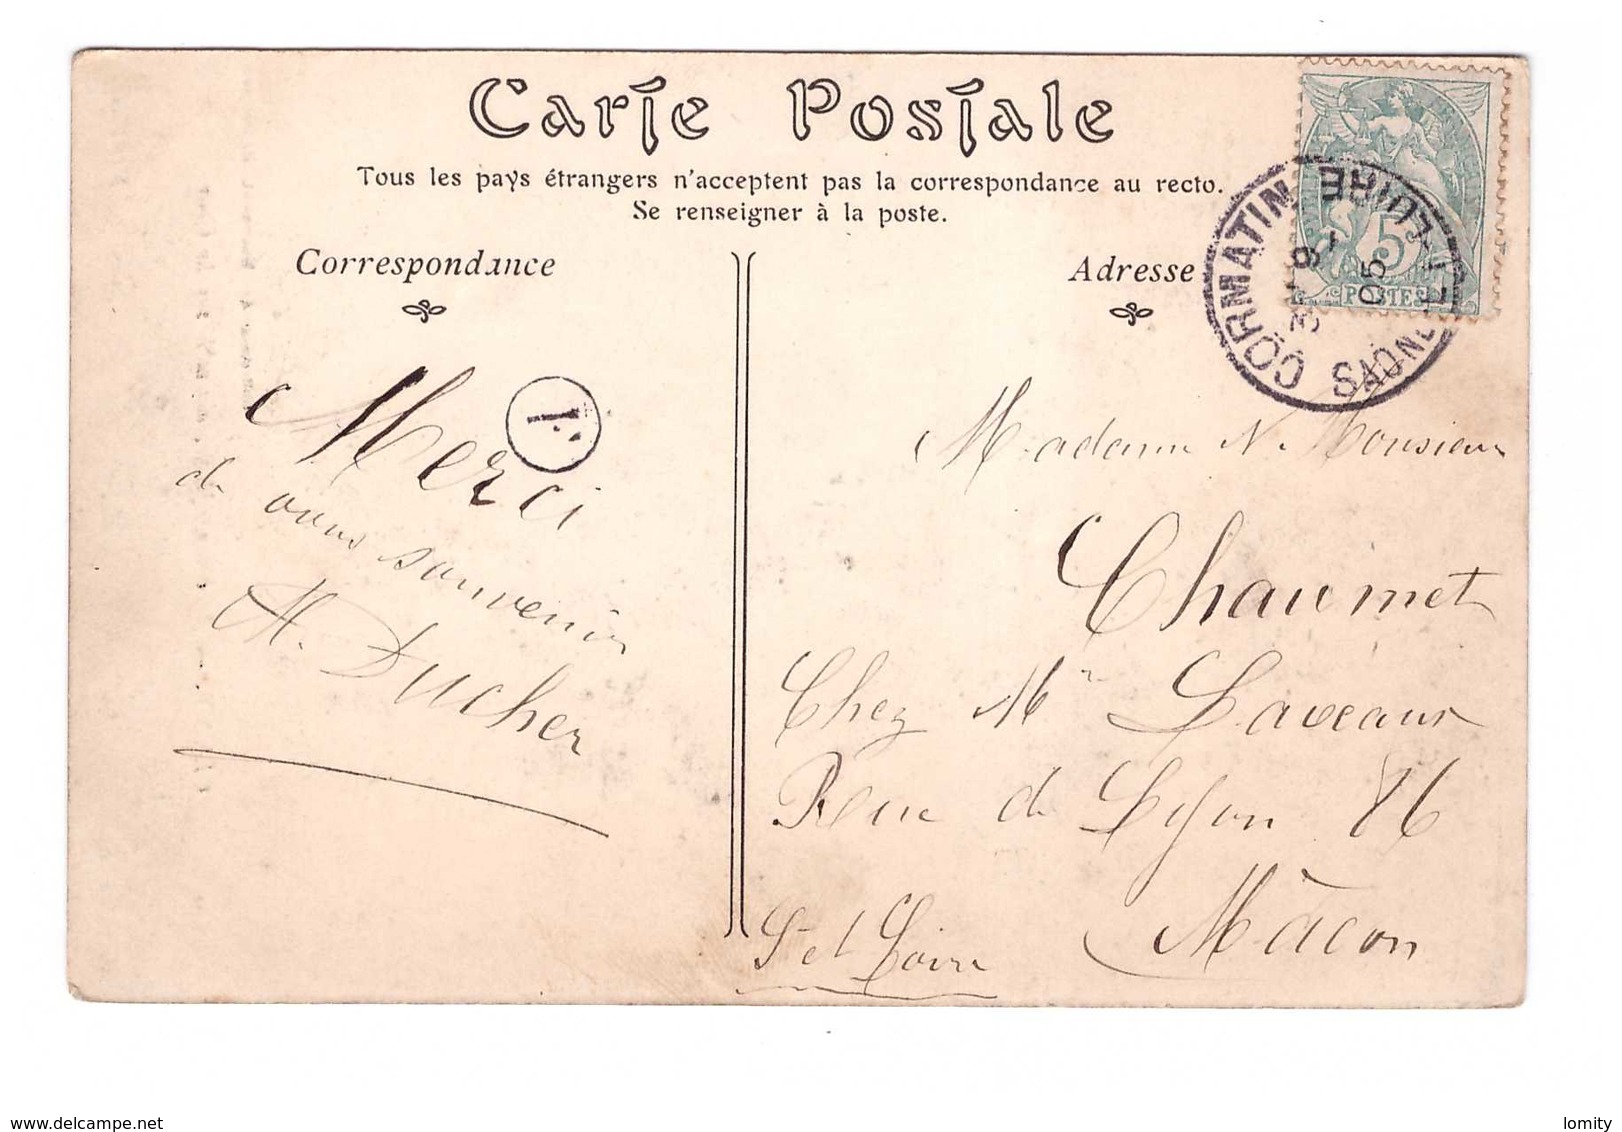 Carte Postale
Tous les pays étrangers n'acceptent pas la correspondance au recto.
Se renseigner à la poste.
Correspondance
Adresse
CORMATIN
SAONE-ET-LOIRE
9
05
5
POSTES
Merci
de vous souvenir
M. Ducher
Madame M. Monsieur
Chaumet
Chez Mr Laveaux
Rue de Lyon 86
Mâcon
S et Loire
www.delcampe.net
lomity